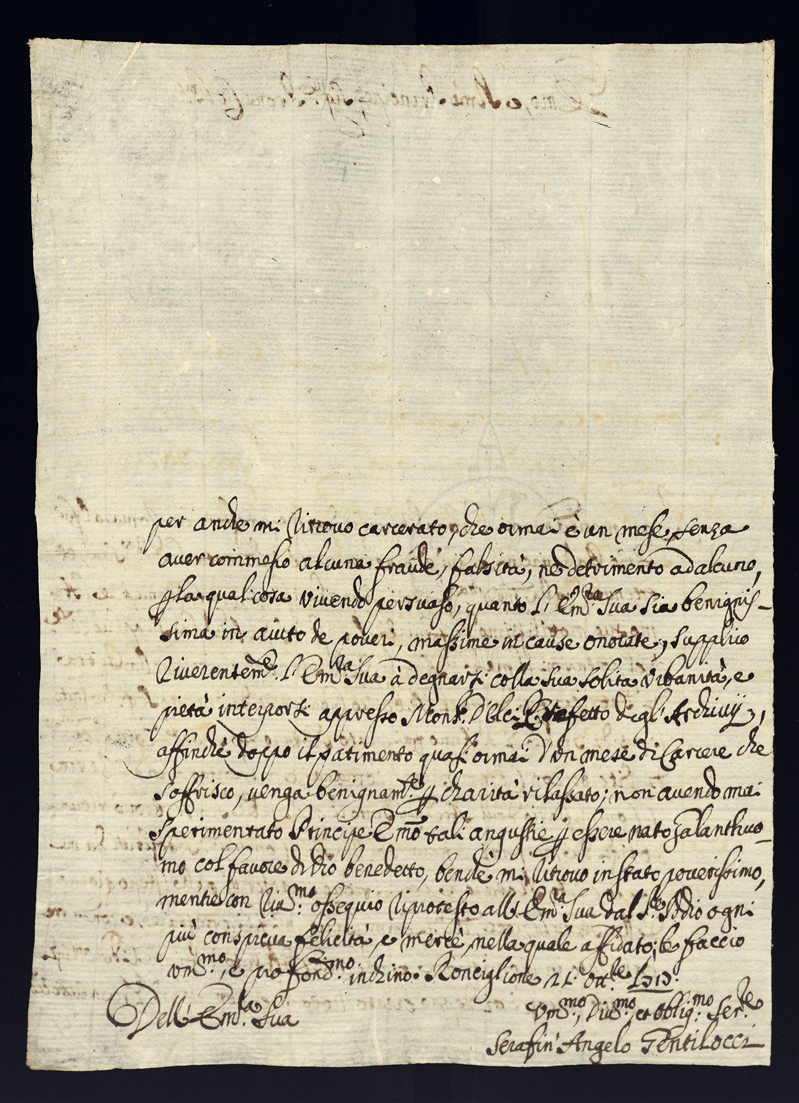 per anche mi ritrovo carcerato, che ormai è un mese, senza
aver commesso alcuna fraude, falsità, nè detrimento ad alcuno,
p la qual cosa vivendo persuaso, quanto l'Em.za Sua sia benignis-
sima in aiuto de poveri, massime in cause onorate, supplico
riverentem.e l'Em.za Sua à degnarsi colla sua solita urbanità, e
pietà interporsi appresso Mons.r Delci Prefetto degl'Archivij,
affinchè doppo il patimento quasi ormai d'un mese di Carcere che
soffrisco, venga benignam.te p charità rilassato; non avendo mai
sperimentato Principe Em̃o tali angustie p essere nato galanthuo-
mo col favore di Dio benedetto, benchè mi ritrovo in stato poverissimo,
mentre con riv.mo ossequio riprotesto all'Em.za Sua dal S.r Iddio ogni
più conspicua felicità, e mercè, nella quale affidato, le faccio
um.mo, e profond.mo inchino. Ronciglione 21 Ott.re
Dell'Em.za Sua
Um.mo, Div.mo, et oblig.mo Ser.re
Serafin' Angelo Gentilocci